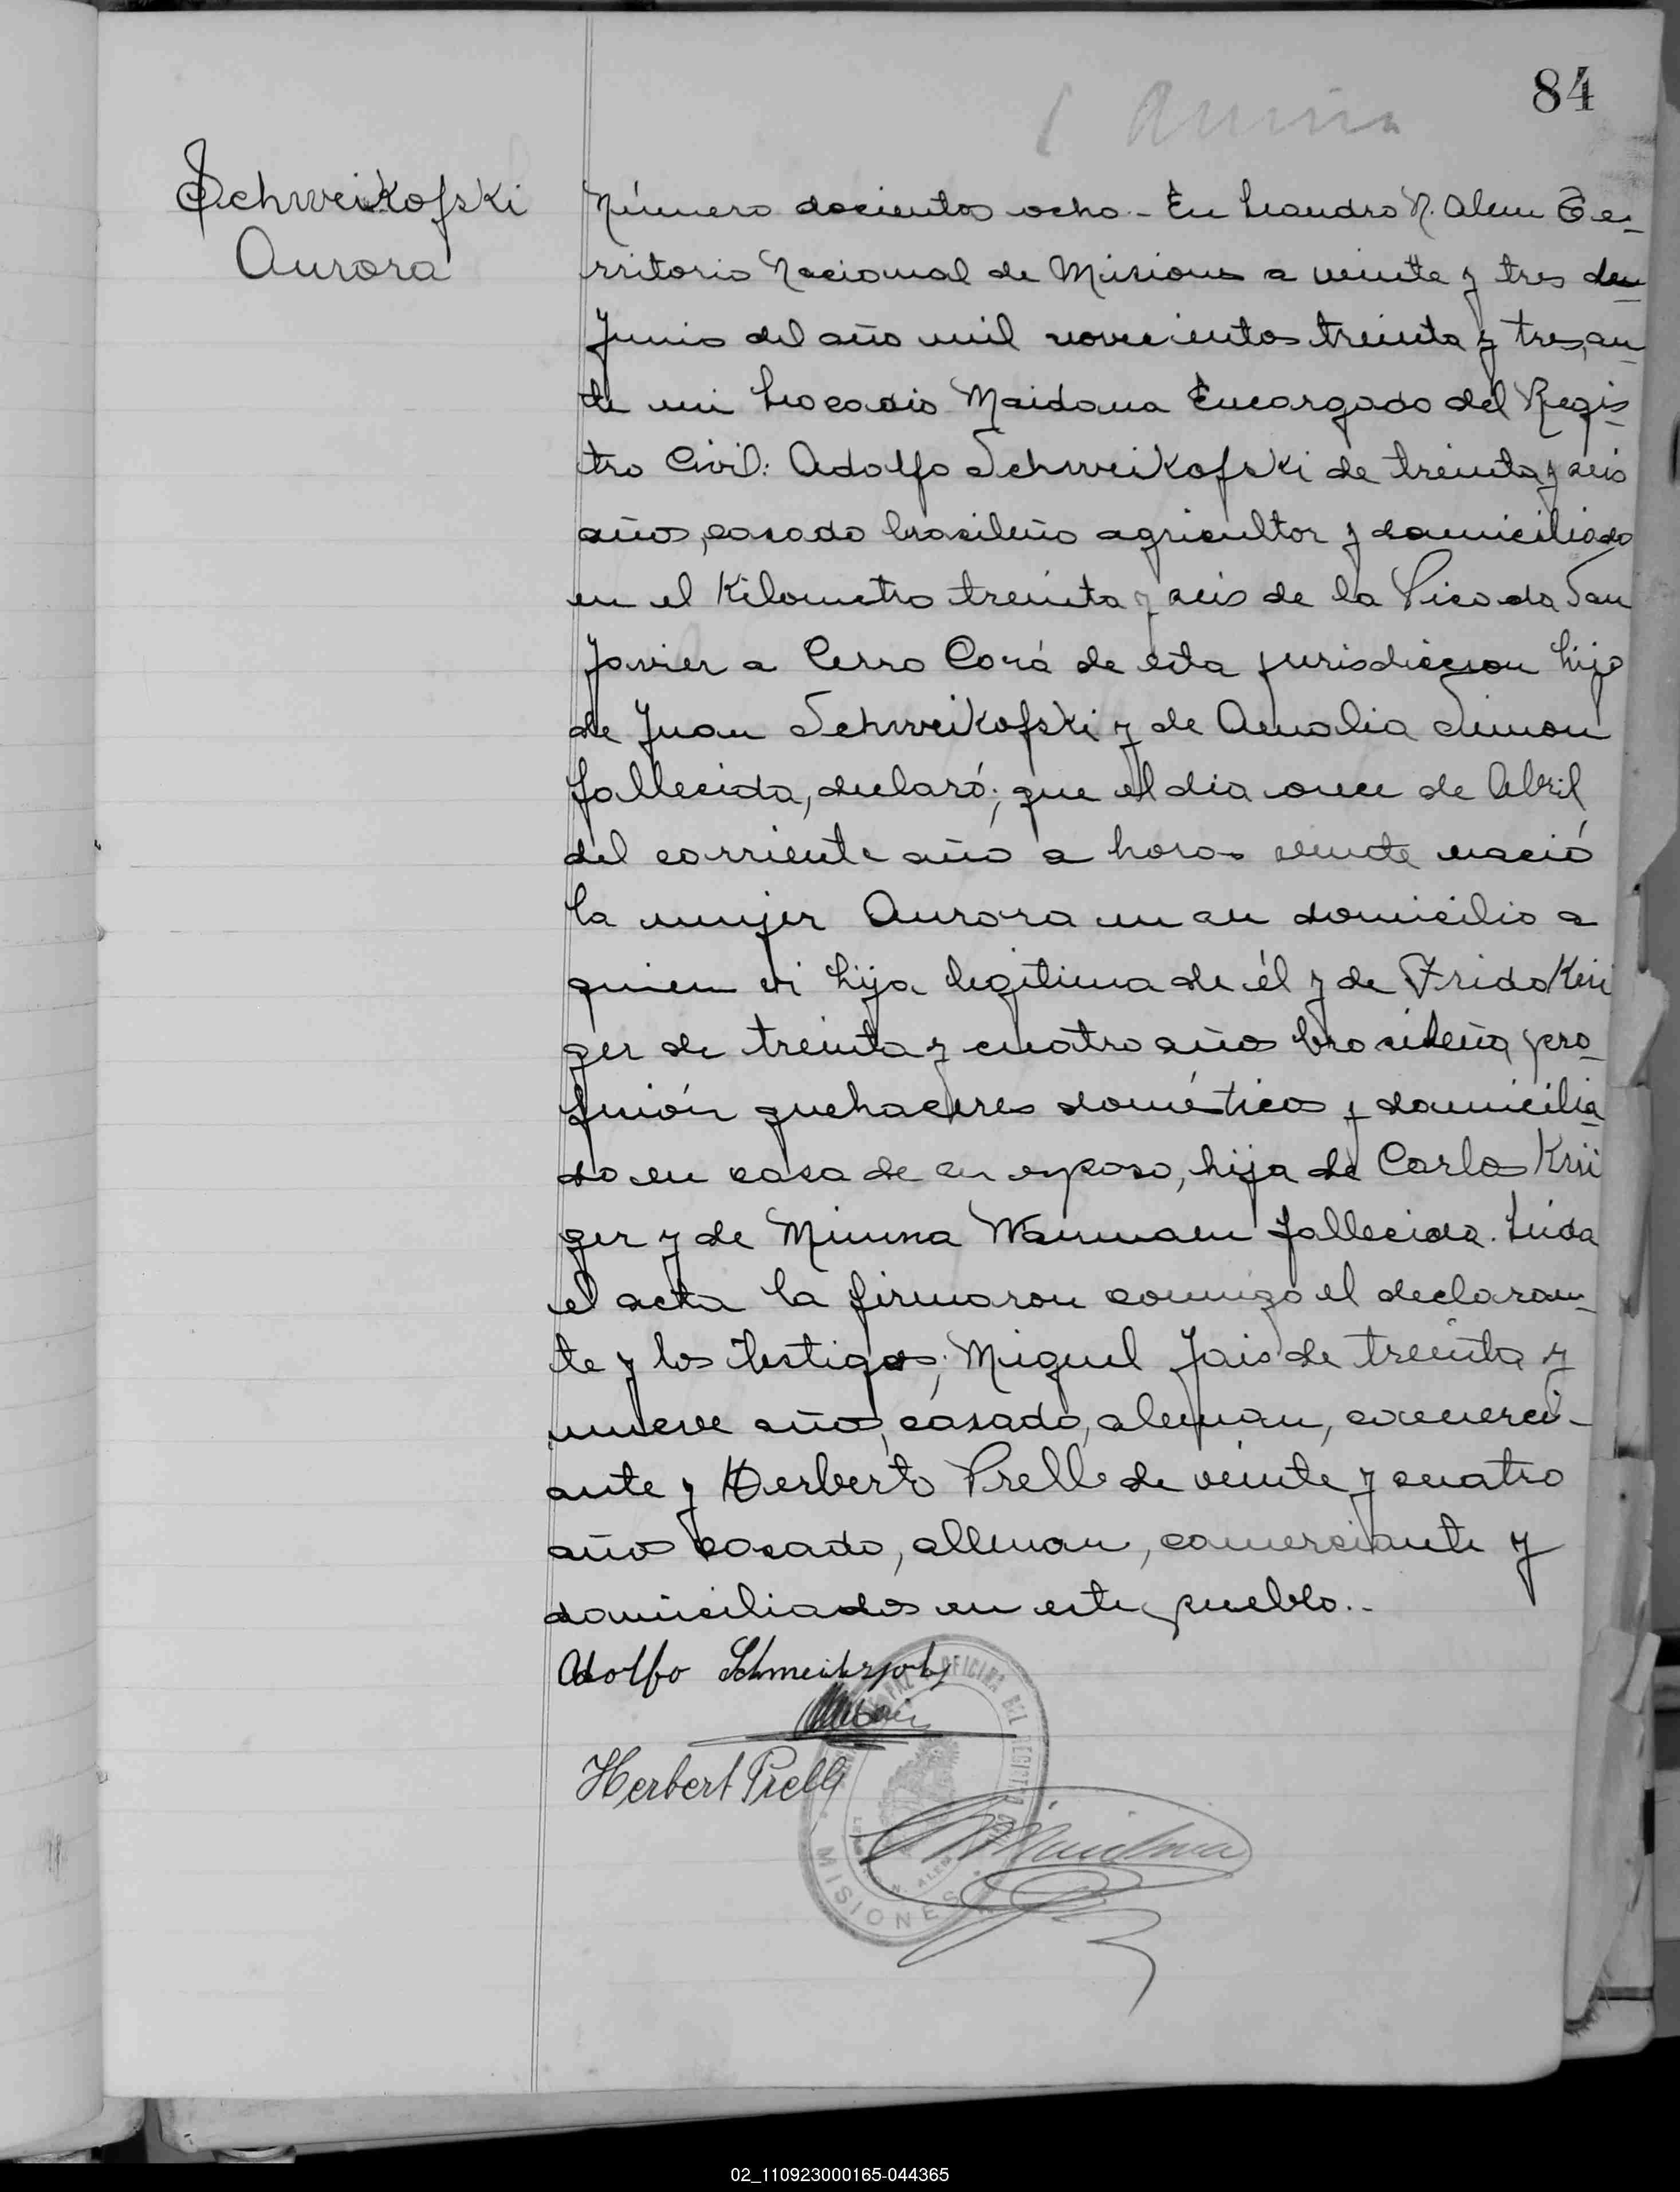 84
Schweikofski
Aurora
Número docientos ocho.- En Leandro N. Alem Te-
rritorio Nacional de Misiones a veinte y tres de
Junio del año mil novecientos treinta y tres, an-
te mi Leocadio Maidana Encargado del Regis-
tro Civil: Adolfo Schweikofski de treinta y seis
años, casado brasileño agricultor y domiciliado
en el Kilometro treinta y seis de la Picada San
Javier a Cerro Corá de esta jurisdiccion hijo
de Juan Schweikofski y de Amalia Simon
fallecida, declaró; que el dia once de Abril
del corriente año a horas veinte nació
la mujer Aurora en su domicilio a
quien vi hija legitima de él y de Frida Krü
ger de treinta y cuatro años brasileña, pro-
fesión quehaceres domésticos y domicilia-
do en casa de su esposo, hija de Carlos Krü
ger y de Minna fallecida. Leida
el acta la firmaron conmigo el declaran-
te y los testigos; Miguel Jais de treinta y
nueve años, casado, aleman, comerci-
ante y Herberto Prell de veinte y cuatro
años casado, alleman, comerciante y
domiciliados en este pueblo.-
Adolfo
Herbert Prell
Maidana
OFICINA DEL REGISTRO
MISIONES
02_110923000165-044365